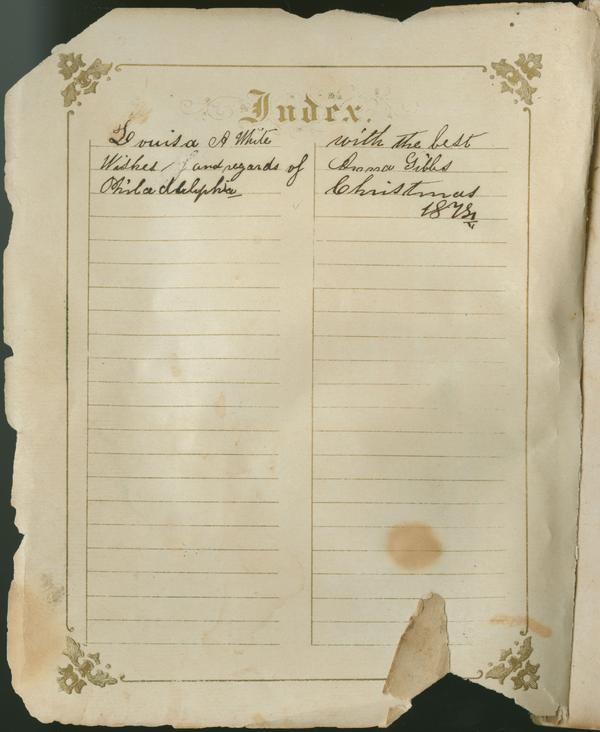 Index.
Louisa A White with the best
Wishes / and regards of Anna Gibbs
Philadelphia Christmas